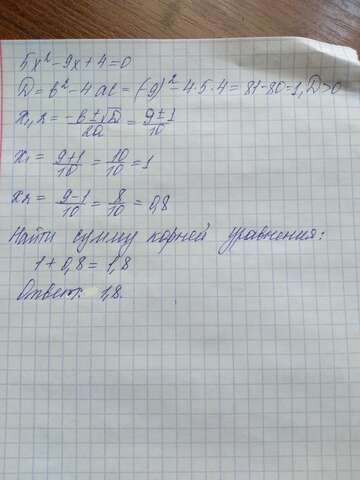 5x² - 9x + 4 = 0
D = b² - 4ac = (-9)² - 4·5·4 = 81 - 80 = 1, D > 0
x₁,₂ = (-b ± √D)/2a = (9 ± 1)/10
x₁ = (9+1)/10 = 10/10 = 1
x₂ = (9-1)/10 = 8/10 = 0,8
Найти сумму корней уравнения:
1 + 0,8 = 1,8
Ответ: 1,8.